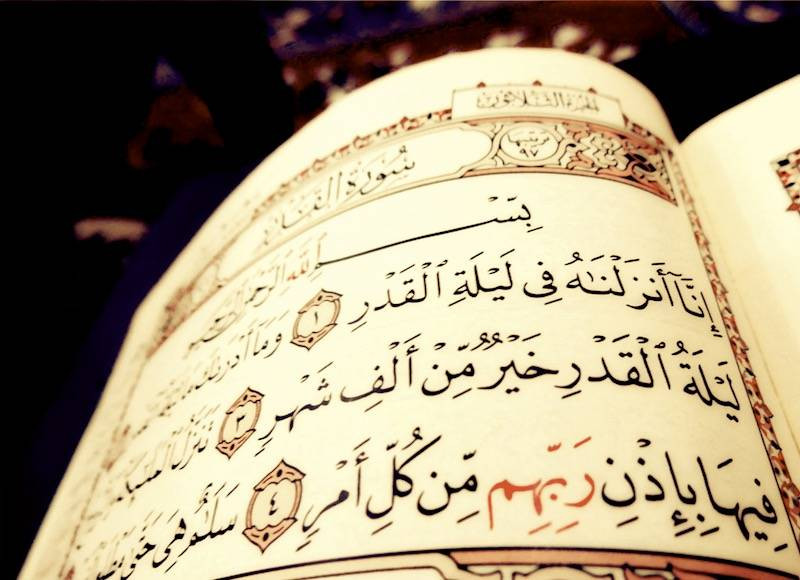 الجزء الثلاثون
سُورَةُ القَدْرِ ترتيبها ٩٧
بِسْمِ ٱللَّهِ ٱلرَّحْمَٰنِ ٱلرَّحِيمِ
إِنَّآ أَنزَلْنَٰهُ فِى لَيْلَةِ ٱلْقَدْرِ ١ وَمَآ أَدْرَىٰكَ
لَيْلَةُ ٱلْقَدْرِ خَيْرٌ مِّنْ أَلْفِ شَهْرٍ ٣ تَنَزَّلُ
فِيهَا بِإِذْنِ رَبِّهِم مِّن كُلِّ أَمْرٍ ٤ سَلَٰمٌ هِىَ حَتَّىٰ